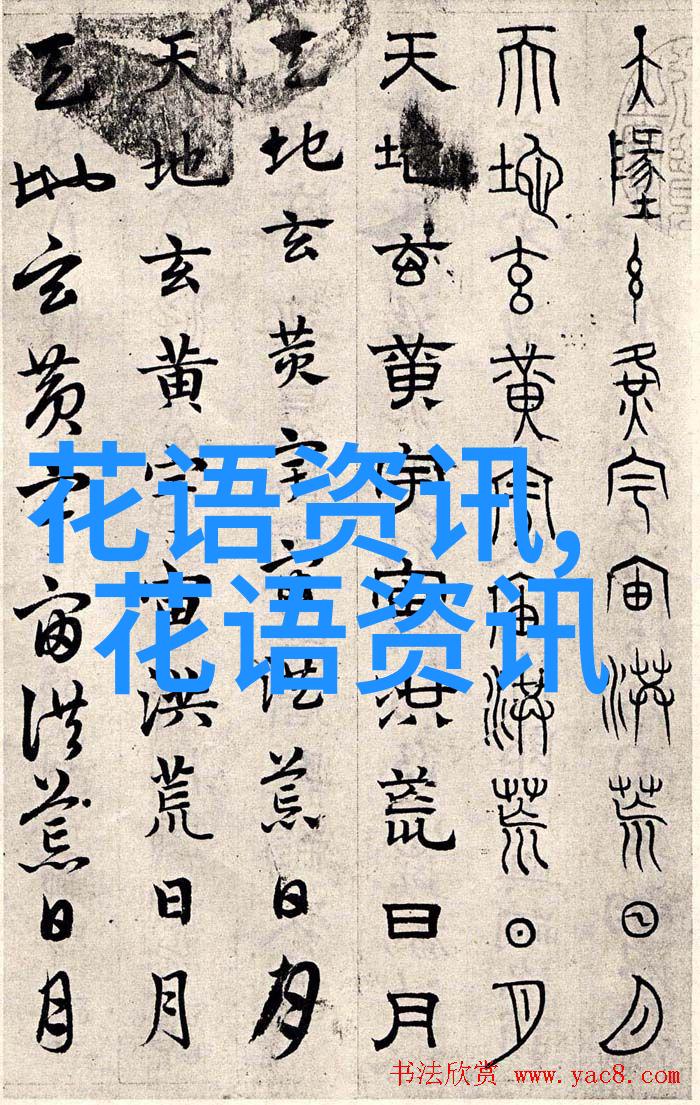 天墬玄黄宇宙洪荒日月
天地玄黄宇宙洪荒日月
天地玄黄宇宙洪荒日月
天地玄黄宇宙洪荒日月
天地玄黄宇宙洪荒日月
天地玄黄宇宙洪荒日月
花语资讯,
花语资讯
书法欣赏 www.yac8.com